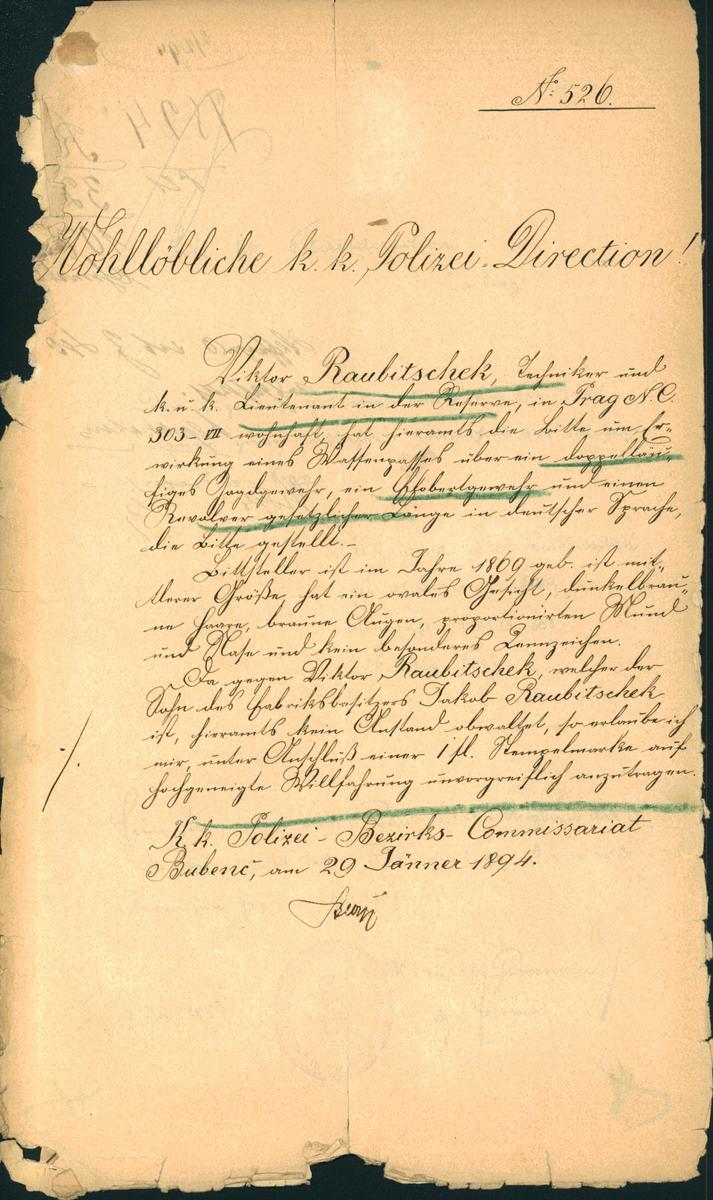 N: 526.
Wohllöbliche k. k. Polizei-Direction!
Viktor Raubitschek, Techniker und
k. u. k. Lieutenant in der Reserve, in Prag N. C.
303-VII wohnhaft, hat hieramts die Bitte um Er-
wirkung eines Waffenpasses über ein doppelläu-
figes Jagdgewehr, ein Flobertgewehr und einen
Revolver gesetzlicher Länge in deutscher Sprache,
die Bitte gestellt.-
Bittsteller ist im Jahre 1869 geb. ist mit-
tlerer Größe, hat ein ovales Gesicht, dunkelbrau-
ne Haare, braune Augen, proportionirten Mund
und Nase und kein besonderes Kennzeichen.
Da gegen Viktor Raubitschek, welcher der
Sohn des Fabriksbesitzers Jakob Raubitschek
ist, hieramts kein Anstand obwaltet, so erlaube ich
mir, unter Anschluß einer 1 fl. Stempelmarke auf
hochgeneigte Willfahrung unvorgreiflich anzutragen.
./.
K. k. Polizei-Bezirks-Commissariat
Bubenč, am 29 Jänner 1894.